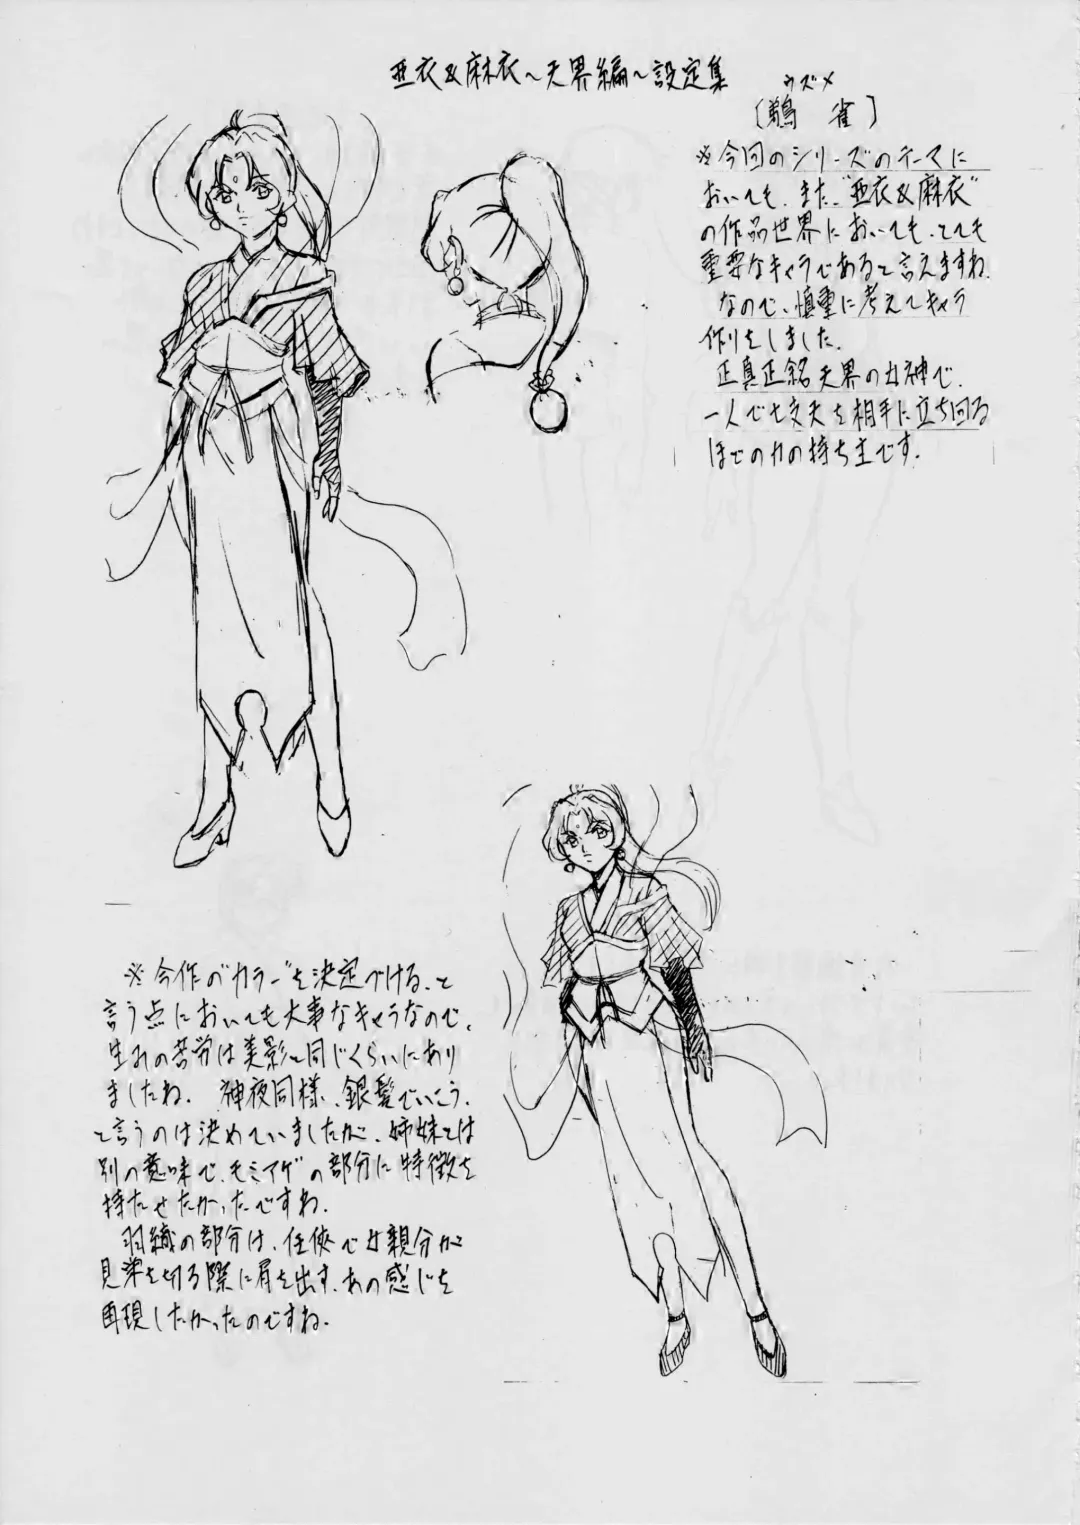 亜衣&麻衣~天界編~設定集
ウズメ
〔鵜雀〕
※今回のシリーズのテーマに
おいても、また“亜衣&麻衣”
の作品世界においても、とても
重要なキャラであると言えますね。
なので、慎重に考えてキャラ
作りをしました。
正真正銘天界の女神で、
一人でも丈夫を相手に立ち回る
ほどの力の持ち主です。
※今作の“カラー”を決定づける、と
言う点においても大事なキャラなので、
生みの苦労は美影と同じくらいにあり
ましたね。 神夜同様、銀髪でいこう、
と言うのは決めていましたが、姉妹とは
別の意味で、モミアゲの部分に特徴を
持たせたかったですね。
羽織の部分は、任侠で女親分が
見栄を切る際に肩を出す、あの感じを
再現したかったのですね。